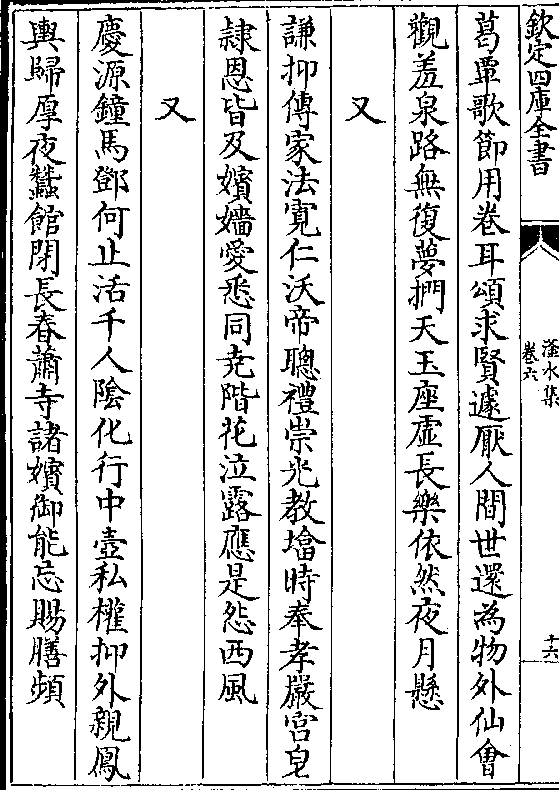 欽定四庫全書
滏水集
卷六
十六
葛覃歌節用卷耳頌求賢遽厭人間世還為物外仙會
觀羞泉路無復夢捫天玉座虛長樂依然夜月懸
又
謙抑傳家法寛仁沃帝聰禮崇光教塲時奉孝嚴宫皂
隸恩皆及嬪嬙愛悉同尭階花泣露應是怨西風
又
慶源鐘馬鄧何止活千人隂化行中壼私權抑外親鳳
輿歸厚夜蠶館閉長春蕭寺諸嬪御能忘賜膳頻